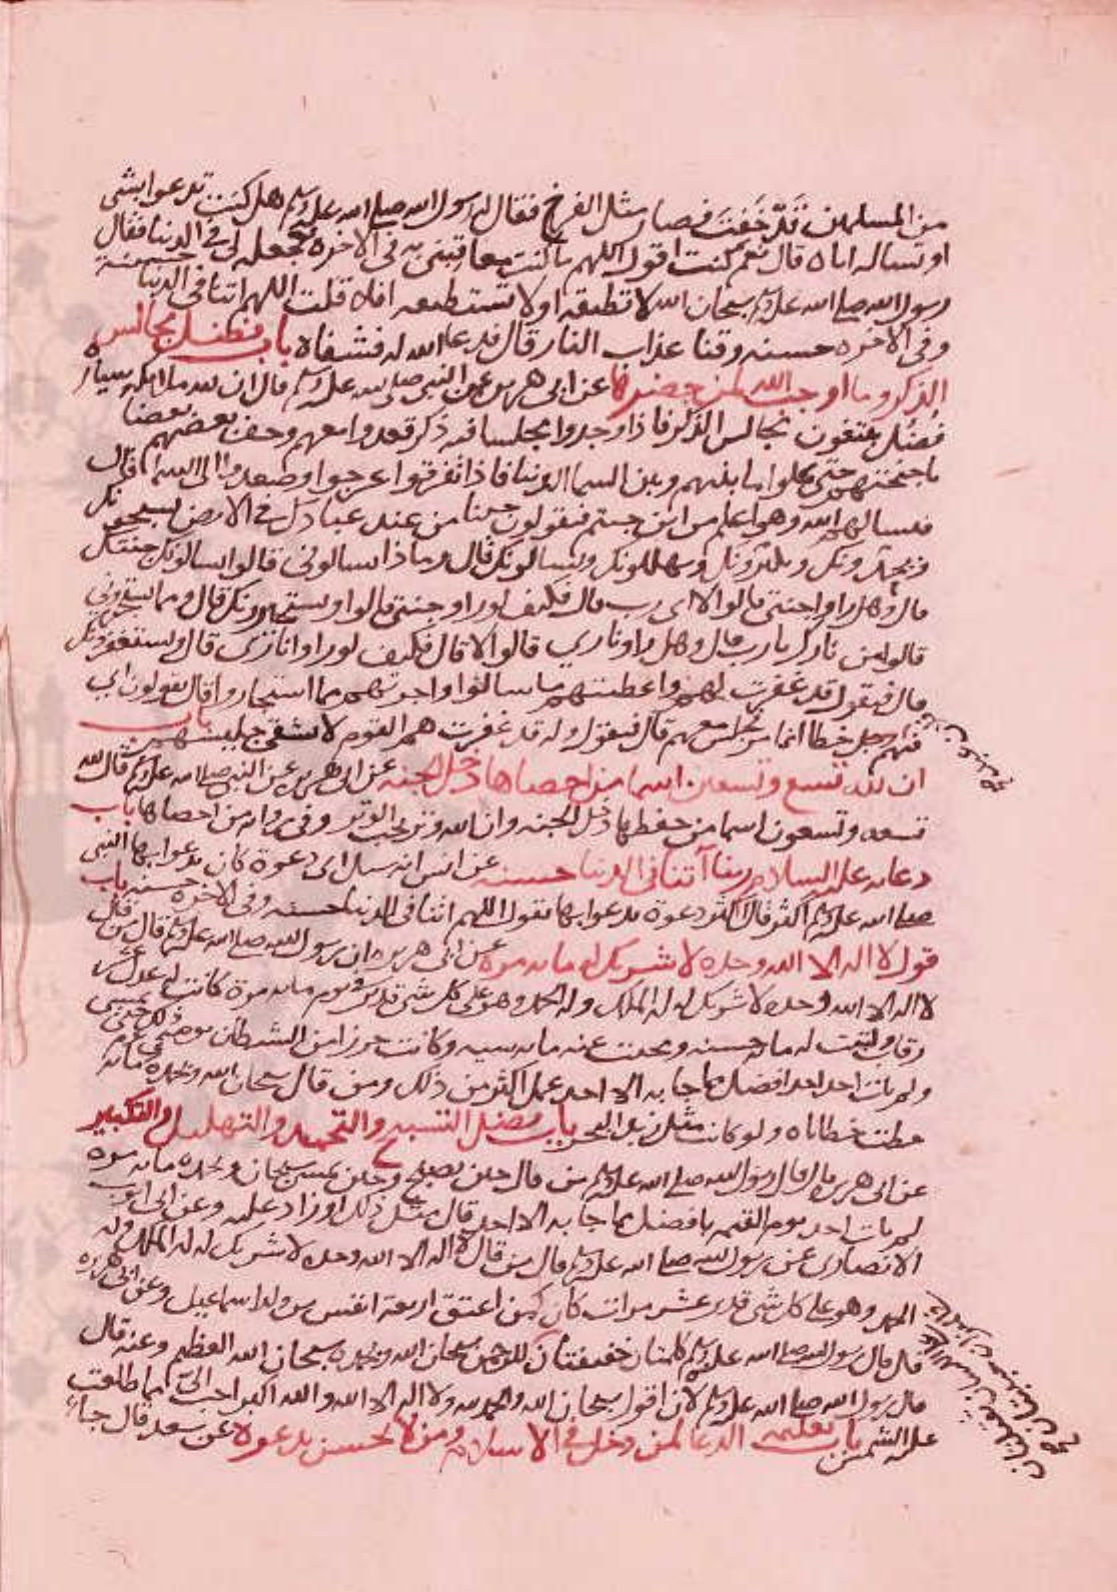 من المسلمين قد خفت فصار مثل الفرخ فقال له رسول الله صلى الله عليه وسلم هل كنت تدعوا بشى
او تساله اياه قال نعم كنت اقول اللهم ما كنت معاقبنى به فى الاخرة فعجله لى فى الدنيا فقال
رسول الله صلى الله عليه وسلم سبحان الله لا تطيقه او لا تستطيعه افلا قلت اللهم اتنا فى الدنيا حسنة
وفى الاخره حسنه وقنا عذاب النار قال فدعا الله له فشفاه باب فضل مجالس
الذكر وما اوجب الله لمن حضرها عن ابى هريره عن النبى صلى الله عليه وسلم قال ان لله ملائكه سياره
فضل يبتغون مجالس الذكر فاذا وجدوا مجلسا فيه ذكر قعدوا معهم وحف بعضهم بعضا
باجنحتهم حتى يملوا ما بينهم وبين السما الدنيا فاذا تفرقوا عرجوا وصعدوا الى السما قال
فيسالهم الله وهو اعلم من اين جيتم فيقولون جينا من عند عباد لك فى الارض يسبحونك
ويحمدونك ويكبرونك ويهللونك ويسالونك قال وما ذا يسالونى قالوا يسالونك جنتك
قال وهل راوا جنتى قالوا لا اى رب قال فكيف لو راوا جنتى قالوا ويستجيرونك قال ومما يستجيرونى
قالوا من نارك يا رب قال وهل راوا نارى قالوا لا قال فكيف لو راوا نارى قال ويستغفرونك
قال فيقول قد غفرت لهم واعطيتهم ما سالوا واجرتهم مما استجاروا قال يقولون اى
فيهم رجل خطا انما مر فجلس معهم قال فيقول وله قد غفرت هم القوم لا يشقى جليسهم باب
ان لله تسع وتسعين اسما من احصاها دخل الجنه عن ابى هريره عن النبى صلى الله عليه وسلم قال لله
تسعه وتسعون اسما من حفظها دخل الجنه وان الله وتر يحب الوتر وفى روايه من احصاها باب
دعايه عليه السلام ربنا آتنا فى الدنيا حسنه عن انس انه سيل اى دعوة كان يدعوا بها النبى
صلى الله عليه وسلم اكثر قال اكثر دعوة يدعوا بها يقول اللهم اتنا فى الدنيا حسنه وفى الاخره حسنه باب
قول لا اله الا الله وحده لا شريك له مايه مرة عن ابى هريره ان رسول الله صلى الله عليه وسلم قال من قال
لا اله الا الله وحده لا شريك له له الملك وله الحمد وهو على كل شى قدير فى يوم مايه مرة كانت له عدل عشر
رقاب وكتبت له مايه حسنه ومحيت عنه مايه سييه وكانت حرزا من الشيطان يومه ذلك حتى يمسى
ولم يات احد افضل مما جا به الا احد عمل اكثر من ذلك ومن قال سبحان الله وبحمده فى يوم مايه
حطت خطاياه ولو كانت مثل زبد البحر باب فضل التسبيح والتحميد والتهليل والتكبير
عن ابى هريره قال قال رسول الله صلى الله عليه وسلم من قال حين يصبح وحين يمسى سبحان وبحمده مايه مرة
لم يات احد يوم القيمه بافضل مما جا به الا احد قال مثل ذلك او زاد عليه وعن ابى ايوب
الانصارى عن رسول الله صلى الله عليه وسلم قال من قال لا اله الا الله وحده لا شريك له له الملك وله
الحمد وهو على كل شى قدير عشر مرات كان كمن اعتق اربعة انفس من ولد اسماعيل وعن ابى هريره
قال قال رسول الله صلى الله عليه وسلم كلمتان خفيفتان للرحمن سبحان الله وبحمده سبحان الله العظيم وعنه قال
قال رسول الله صلى الله عليه وسلم لان اقول سبحان الله والحمد لله ولا اله الا الله والله اكبر احب الى مما طلعت
عليه الشمس باب تعليمه الدعا لمن دخل فى الاسلام ومن لا يحسن يدعوه عن سعد قال جاء